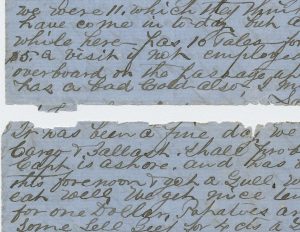 we were 11. which they
have come in to day but
while here has 10 Tales for
a visit if not employed
overboard on the passage
has a bad Cold also. I
It was been a fine day we
Cargo & Tallagh. Shall
Capt is ashore. and has
this forenoon & got a Gull.
eat well. We get nice
for one Dollar, Potatoes an
Some Sell Beef for 4 cts a